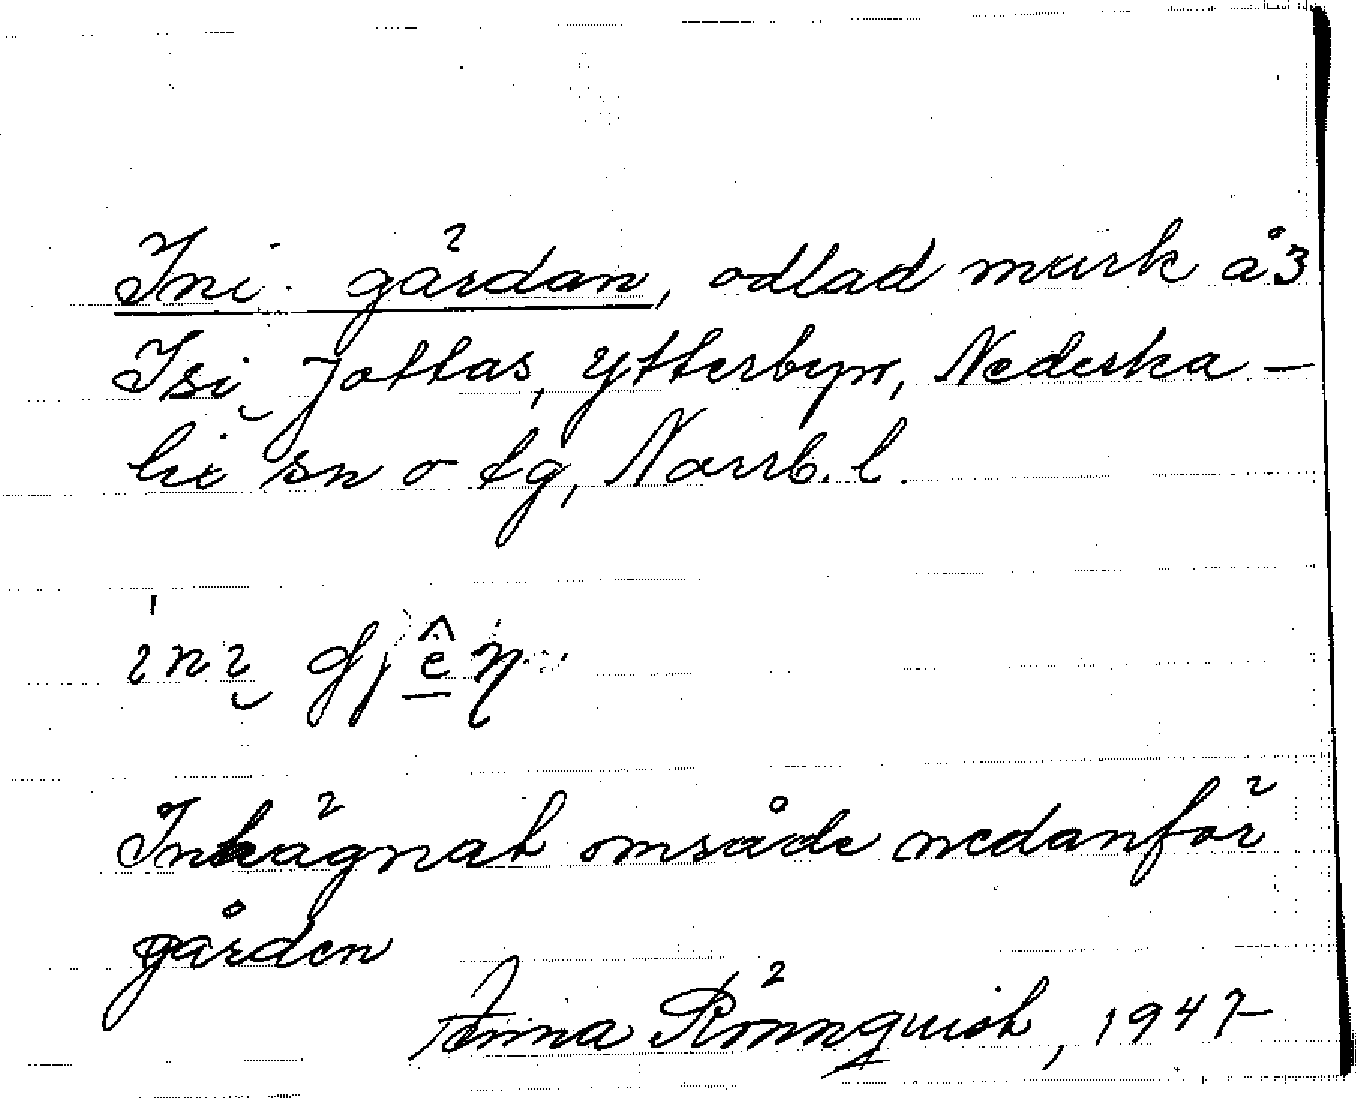 Ini gärdan, odlad mark å 3
Isi Jottas, Ytterbyn, Nederka-
lix sn o tg, Norrb. l.
Inhägnat område nedanför
gården
Anna Rönnquist, 1947